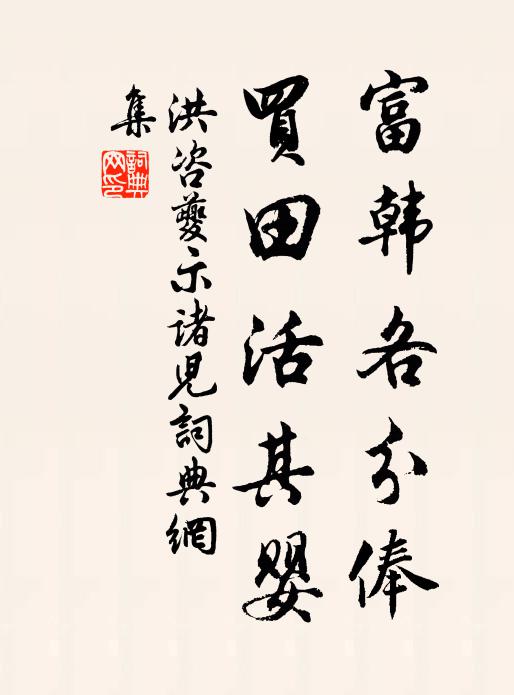 富韩各分俸
買田活其婴
洪咨夔示诸児詞典網
集
詞典
网印